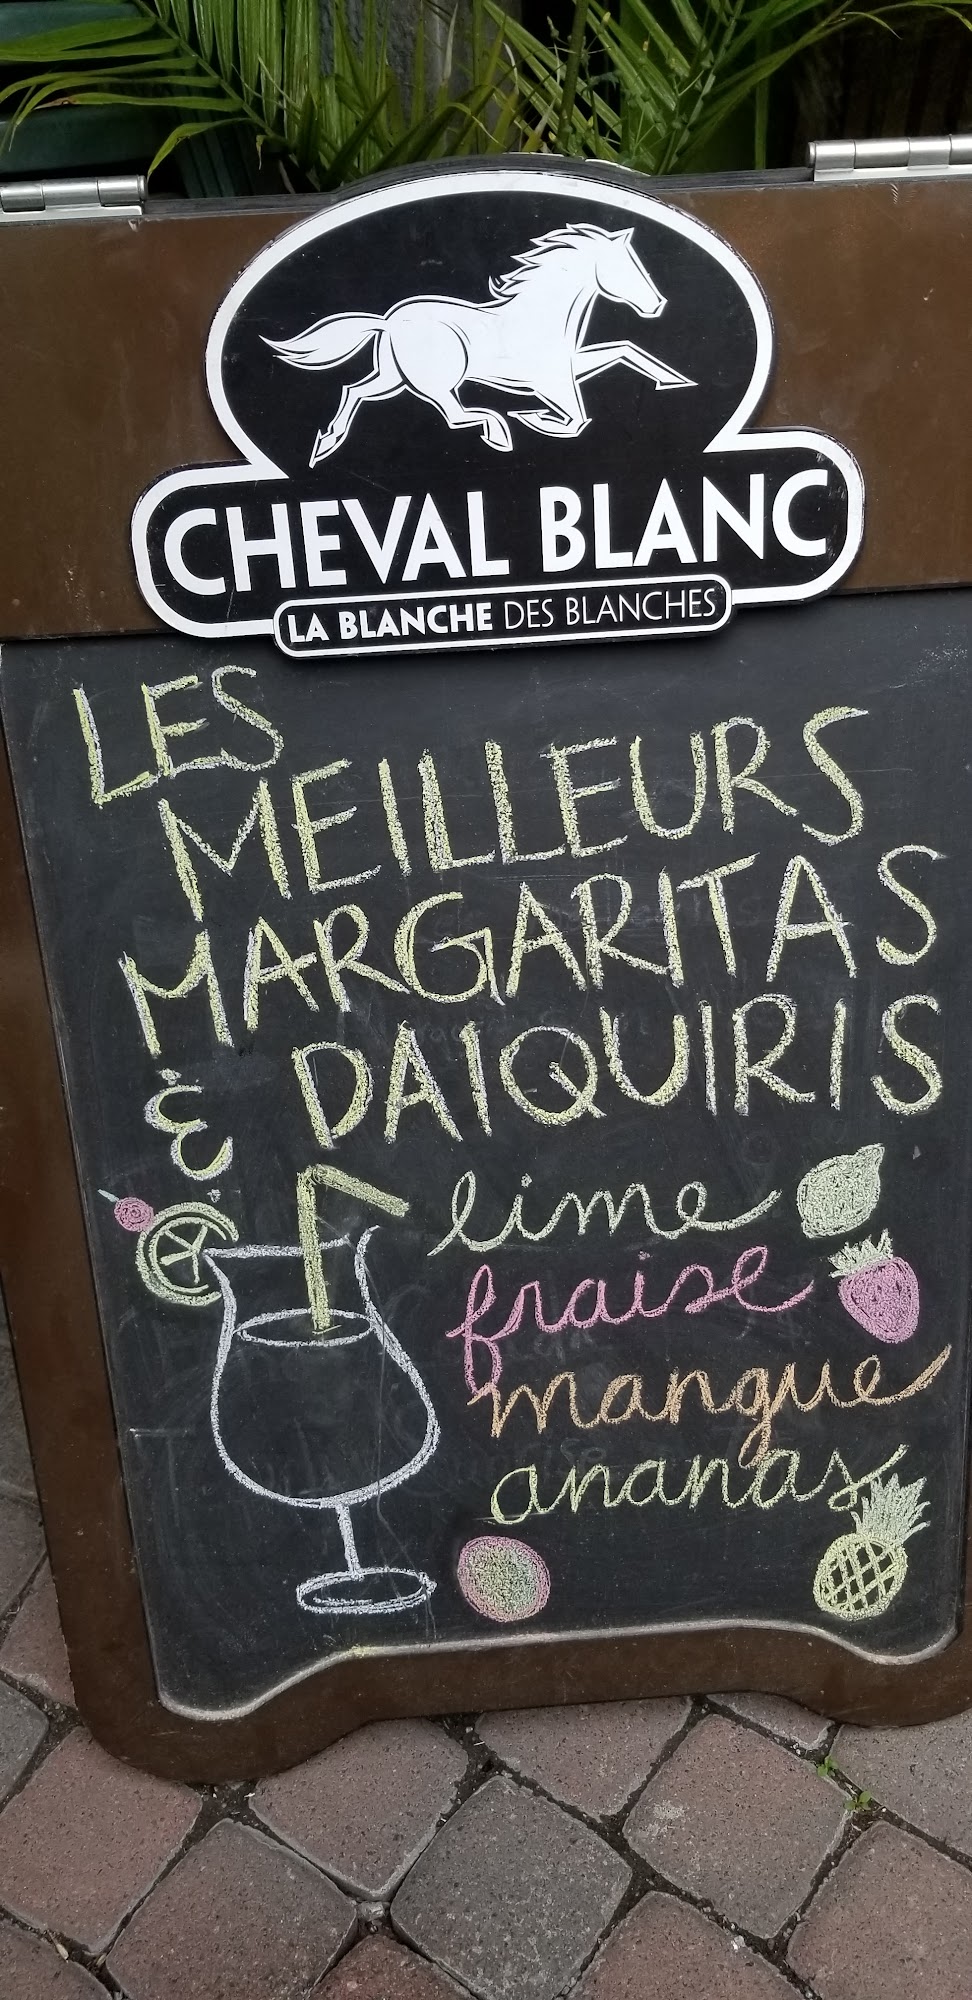 CHEVAL BLANC
LA BLANCHE DES BLANCHES
LES
MEILLEURS
MARGARITAS
& DAIQUIRIS
lime
fraise
mangue
ananas